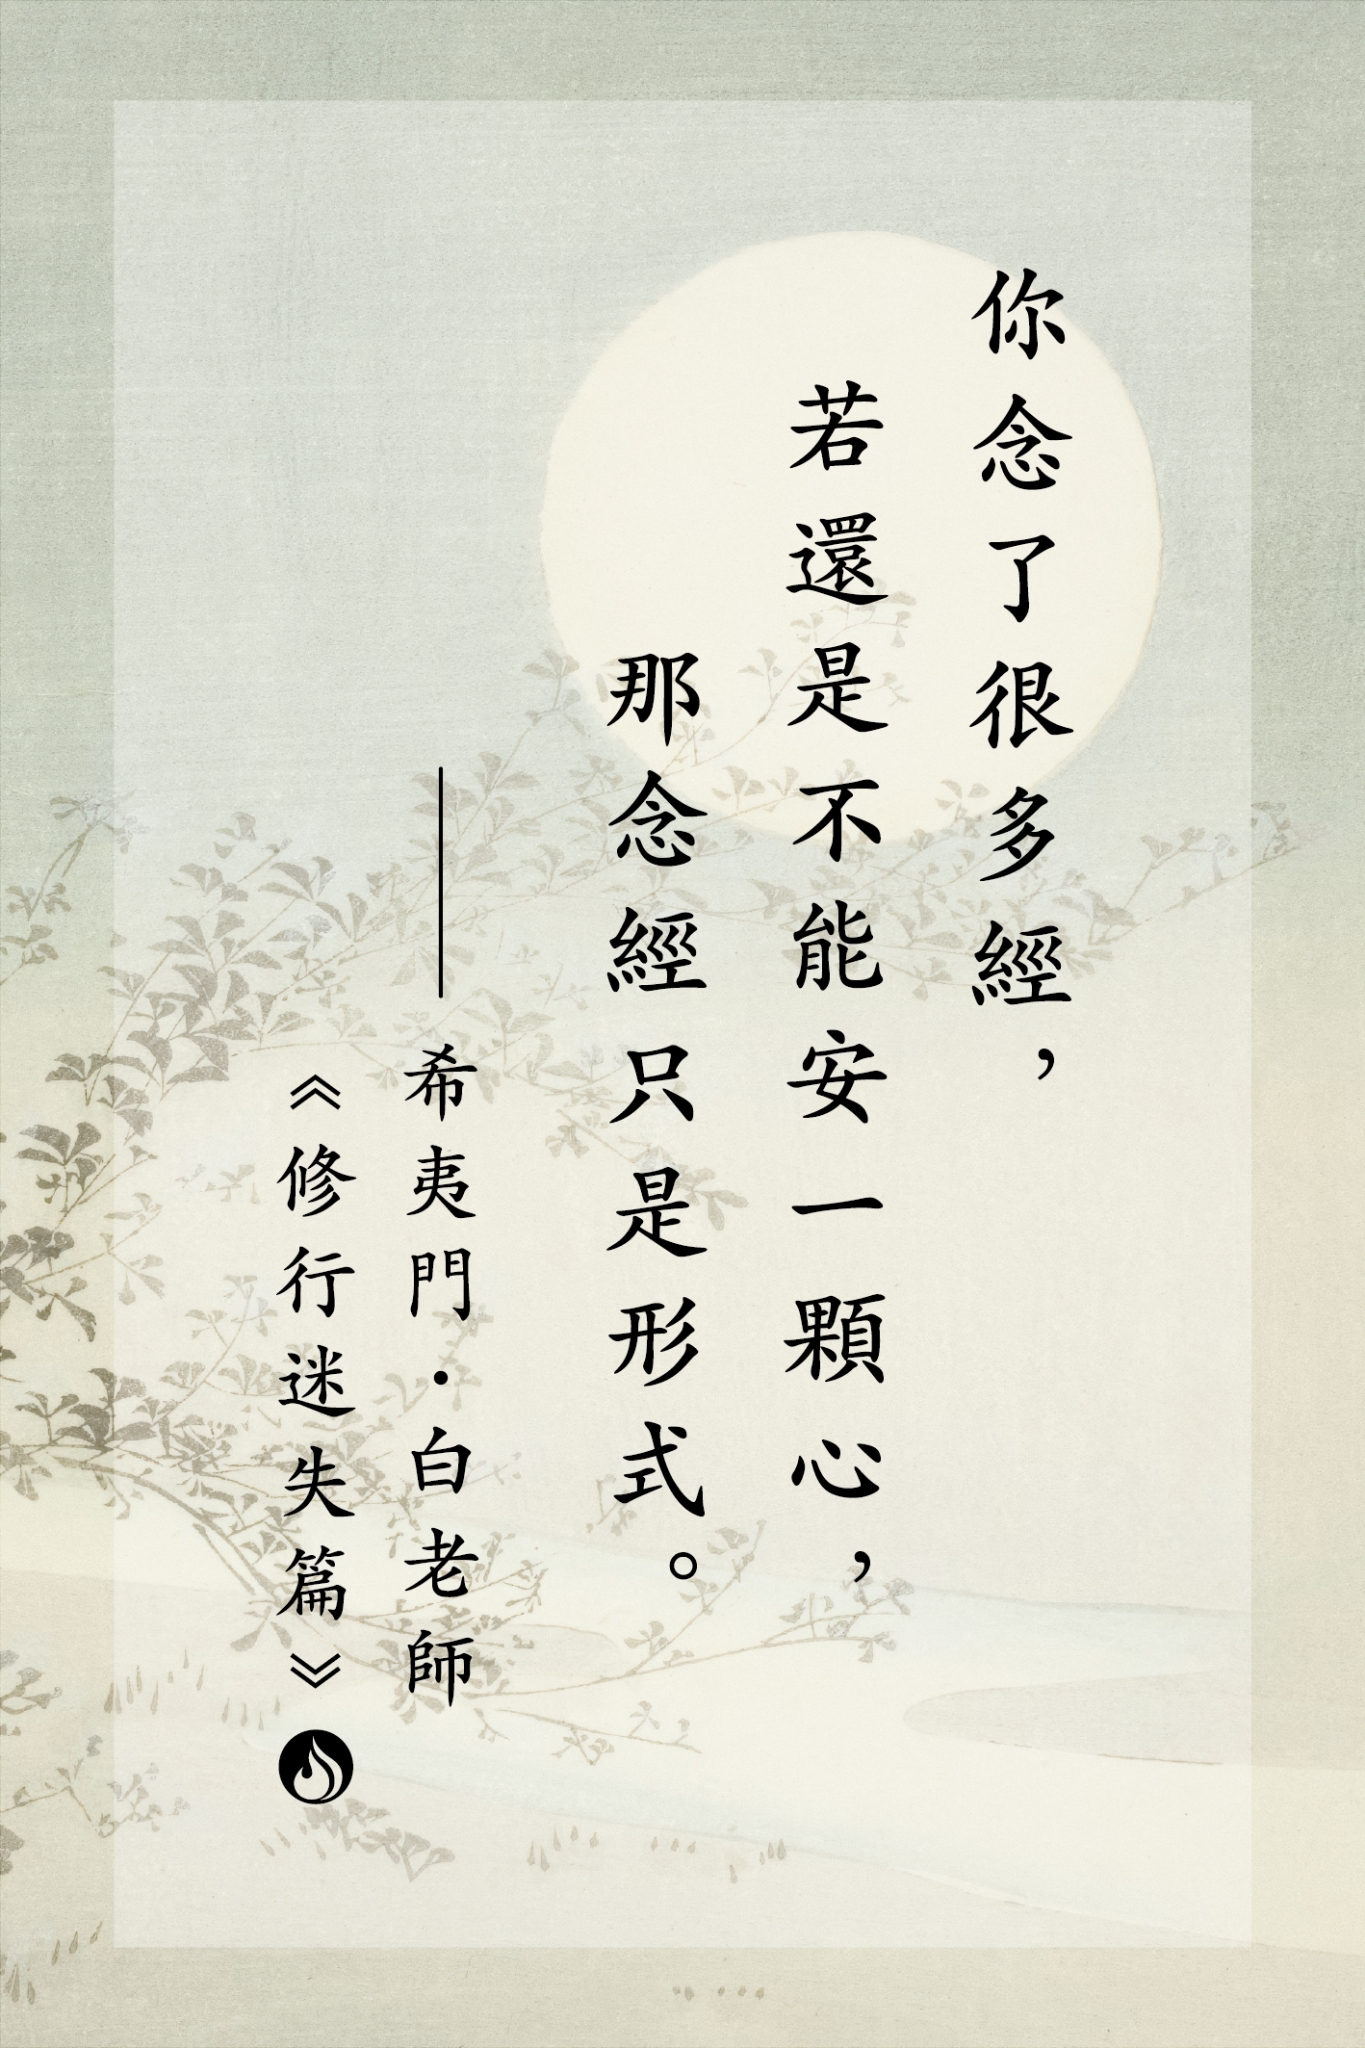 你念了很多經，
若還是不能安一顆心，
那念經只是形式。
——希夷門·白老師
《修行迷失篇》